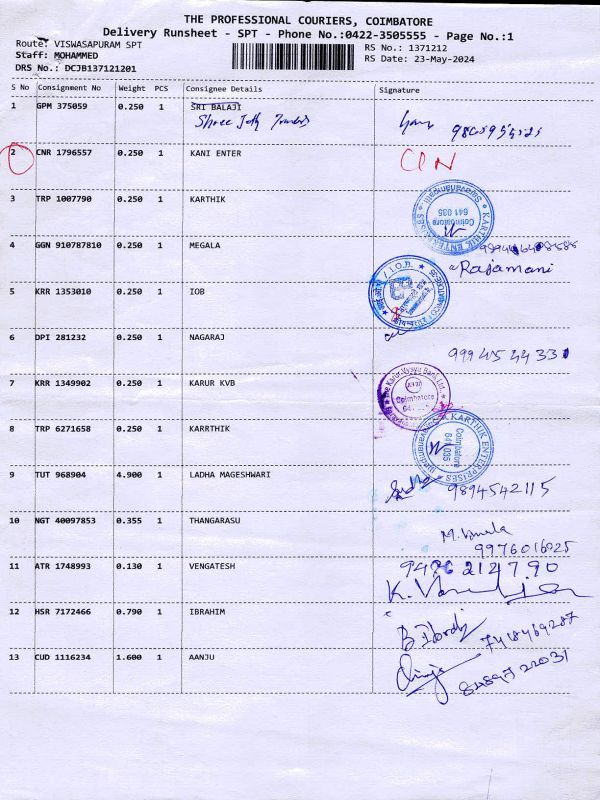 THE PROFESSIONAL COURIERS, COIMBATORE
Delivery Runsheet - SPT - Phone No.:0422-3505555 - Page No.:1
Route: VISWASAPURAM SPT
Staff: MOHAMMED
DRS No.: DCJB137121201
RS No.: 1371212
RS Date: 23-May-2024
S No Consignment No Weight PCS Consignee Details Signature
1 GPM 375059 0.250 1 SRI BALAJI
Shree Jothi
2 CNR 1796557 0.250 1 KANI ENTER
3 TRP 1007790 0.250 1 KARTHIK
KARTHIK ENTER
Coimbatore
641 035
4 GGN 910787810 0.250 1 MEGALA
Rajamani
5 KRR 1353010 0.250 1 IOB
6 DPI 281232 0.250 1 NAGARAJ
7 KRR 1349902 0.250 1 KARUR KVB
The Karur Vysya Bank Ltd.,
Coimbatore
8 TRP 6271658 0.250 1 KARRTHIK
KARTHIK ENTERPRISES
Coimbatore
641 035
9 TUT 968904 4.900 1 LADHA MAGESHWARI
9894542115
10 NGT 40097853 0.355 1 THANGARASU
9976016025
11 ATR 1748993 0.130 1 VENGATESH
9476212790
12 HSR 7172466 0.790 1 IBRAHIM
7418469287
13 CUD 1116234 1.600 1 AANJU